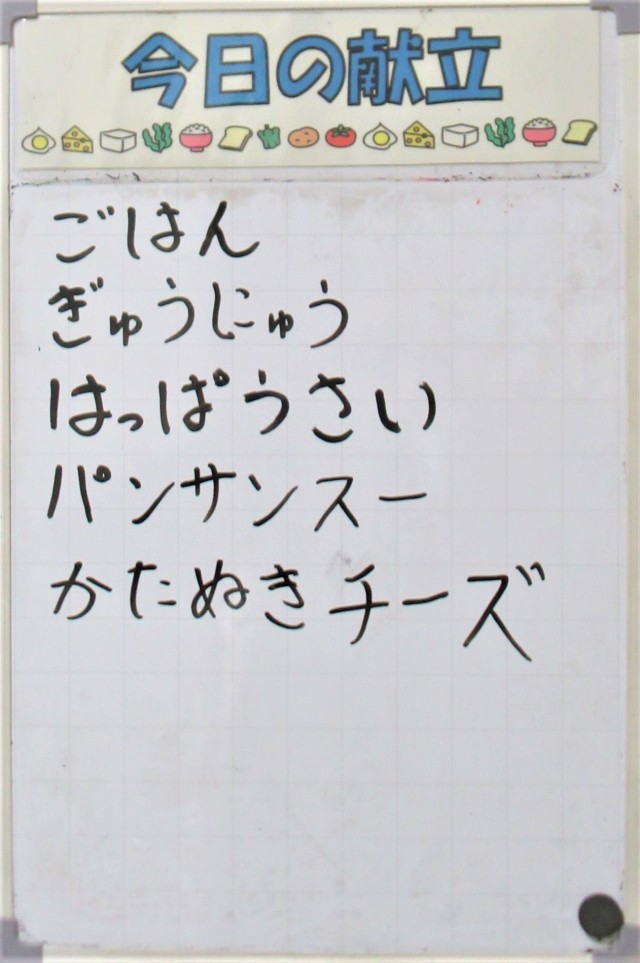 今日の献立
ごはん
ぎゅうにゅう
はっぱうさい
パンサンスー
かたぬきチーズ